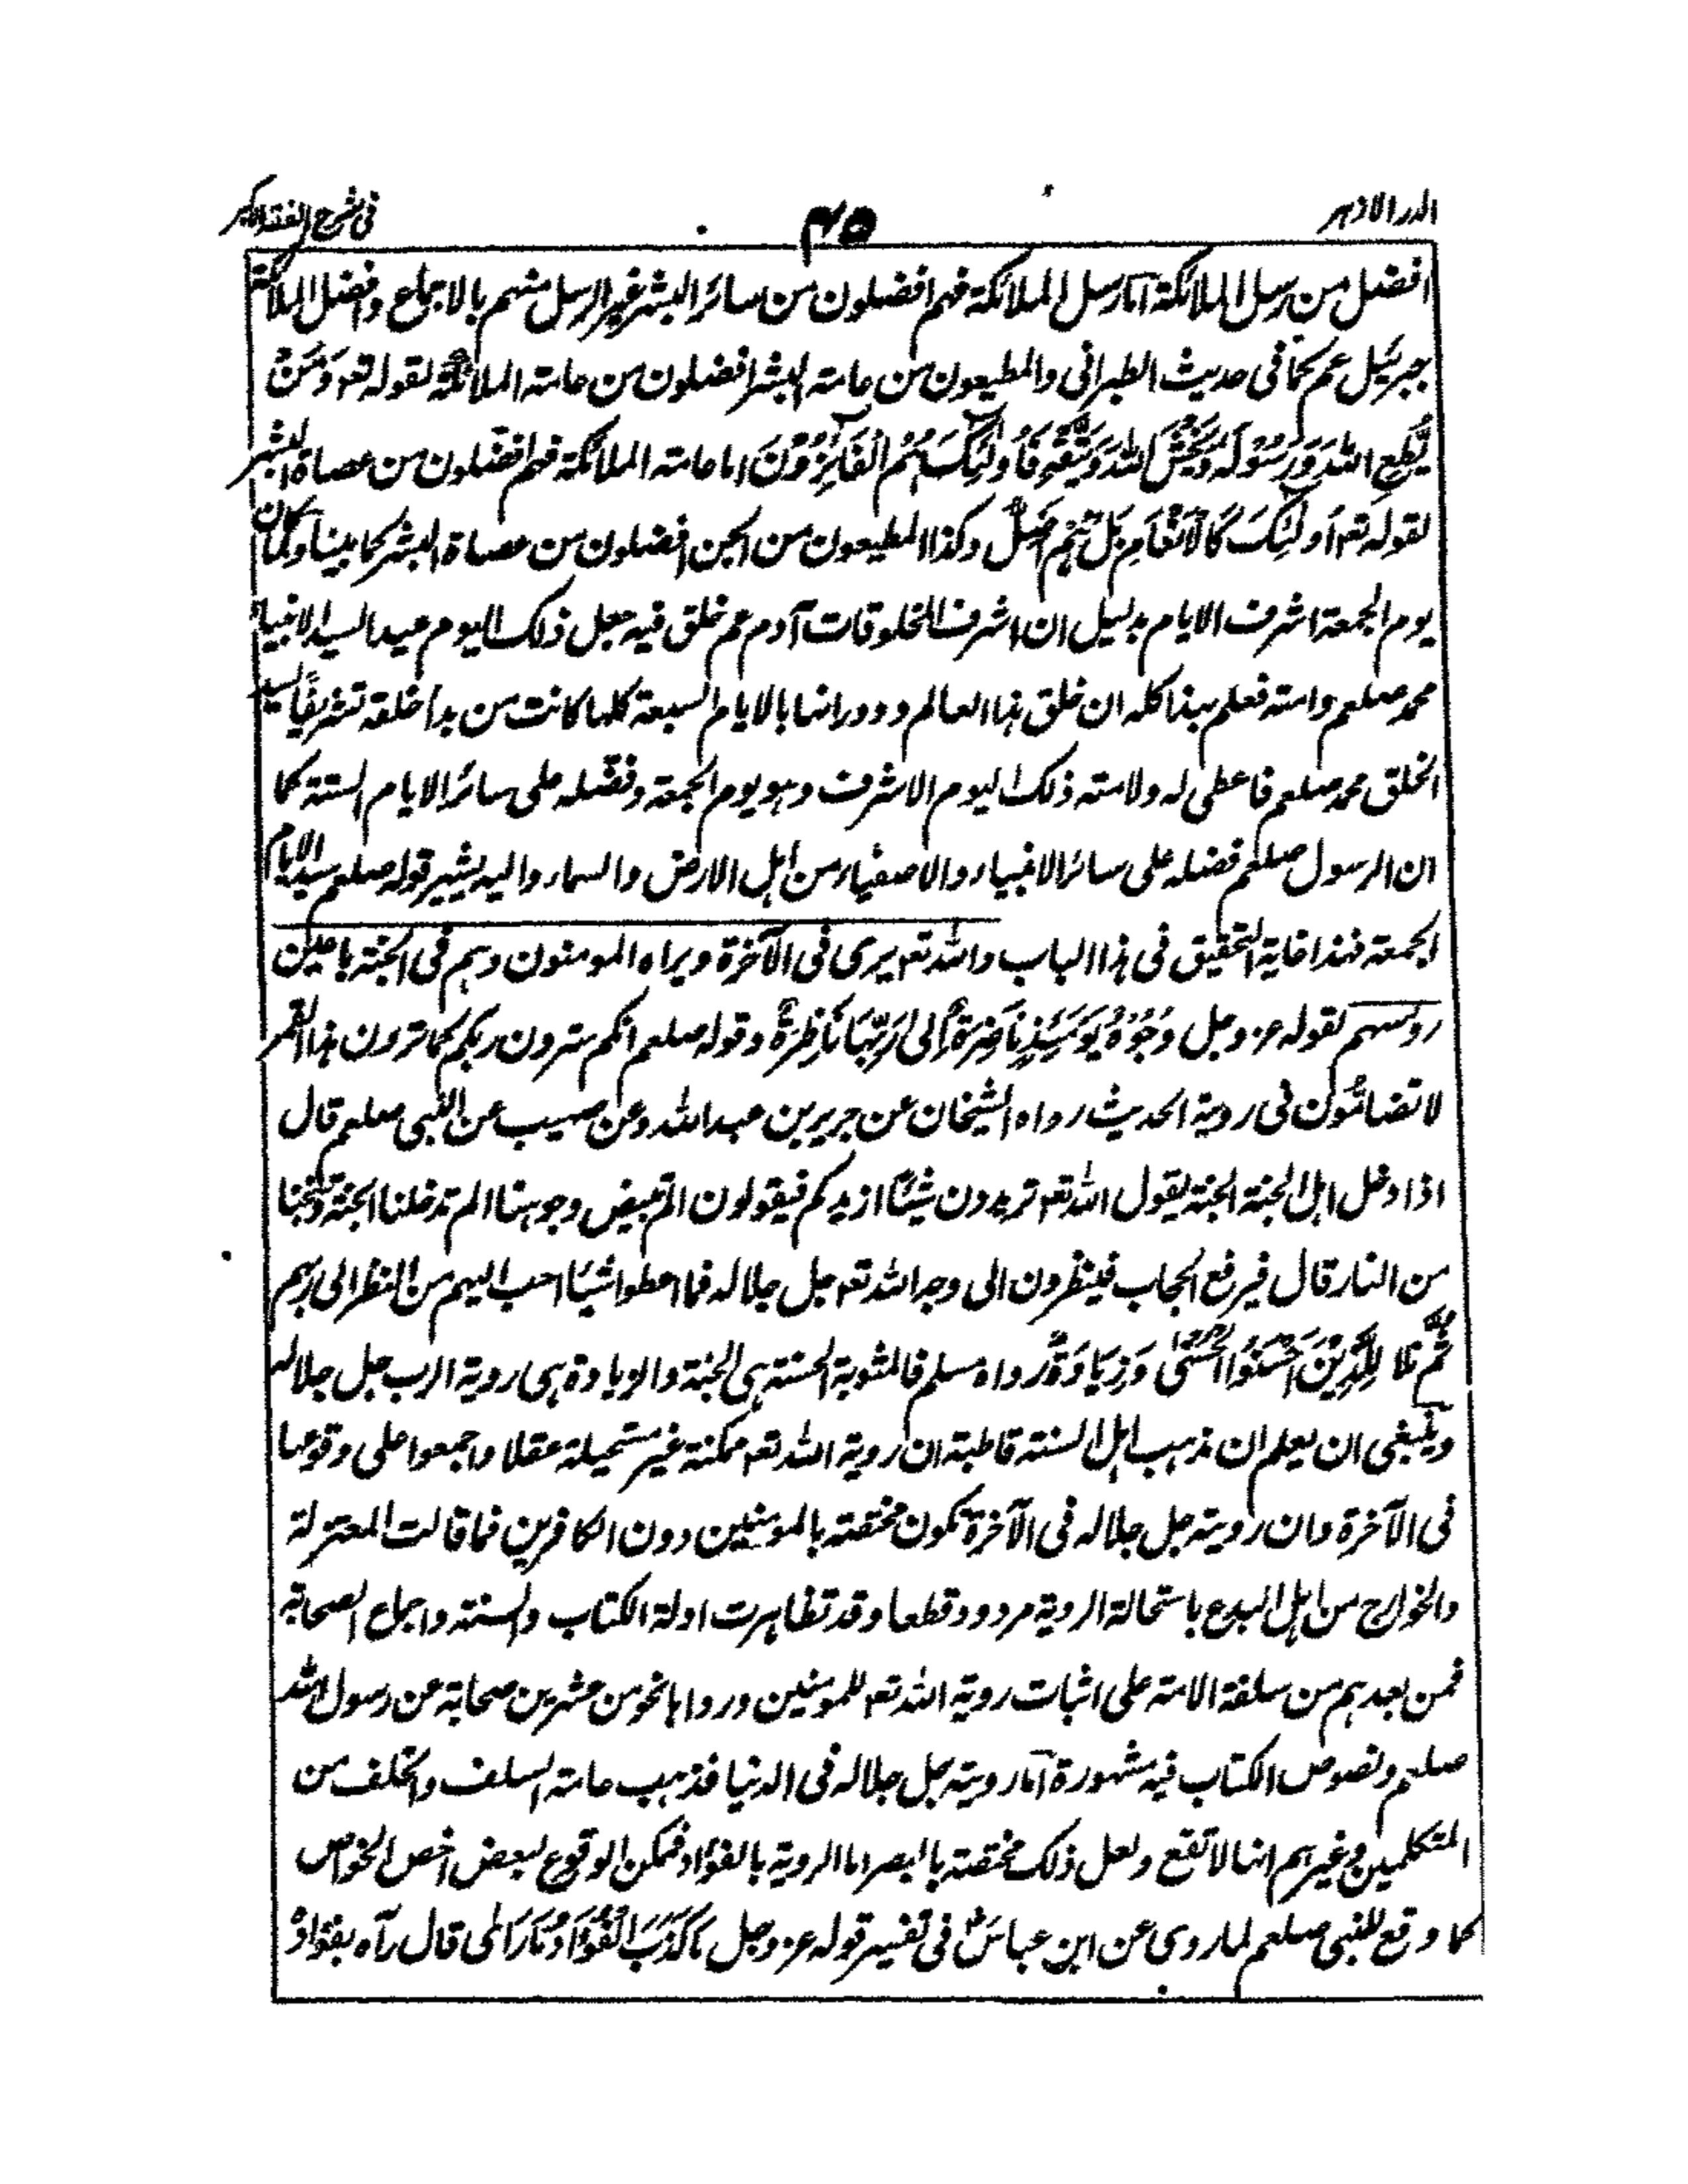 الدر الازہر
۴۵
فی شرح الفقہ الاکبر
افضل من رسل الملائكة اما رسل الملائكة فہم افضلون من سائر البشر غير الرسل منہم بالاجماع وافضل الملائكة
جبرئيل عم كما فی حديث الطبرانی والمطيعون من عامة البشر افضلون من عامة الملائكة لقوله تعہ وَمَنْ
يُّطِعِ اللّٰهَ وَرَسُوْلَهٗ وَيَخْشَ اللّٰهَ وَيَتَّقْهِ فَاُولٰٓئِكَ هُمُ الْفَآئِزُوْنَ اما عامة الملائكة فہم افضلون من عصاة البشر
لقوله تعہ اُولٰٓئِكَ كَالْاَنْعَامِ بَلْ هُمْ اَضَلُّ وكذا المطيعون من الجن افضلون من عصاة البشر كما بينا ولما كان
يوم الجمعة اشرف الايام بدليل ان اشرف المخلوقات آدم عم خلق فيه جعل ذلك اليوم عيدا لسيد الانبياء
محمد صلعم وامته فعلم بهذا كله ان خلق ہذا العالم ودورانہا بالايام السبعة كلہا كانت من بدأ خلقه تشريفًا لسيد
الخلق محمد صلعم فاعطى له ولامته ذلك اليوم الاشرف وہو يوم الجمعة وفضّله على سائر الايام الستة كما
ان الرسول صلعم فضله على سائر الانبياء والاصفياء من اہل الارض والسماء واليه يشير قوله صلعم سيد الايام
الجمعة فہذا غاية التحقيق فی ہذا الباب واللہ تعہ يرى فی الآخرة ويراه المومنون وہم فی الجنة باعين
روسہم لقوله عز وجل وُجُوْهٌ يَّوْمَئِذٍ نَّاضِرَةٌ اِلٰى رَبِّهَا نَاظِرَةٌ وقوله صلعم انكم سترون ربكم كما ترون ہذا القمر
لا تضامّون فی روية الحديث رواه الشيخان عن جرير بن عبد اللہ وعن صہيب عن النبی صلعم قال
اذا دخل اہل الجنة الجنة يقول اللہ تعہ تريدون شيئًا ازيدكم فيقولون الم تبيض وجوہنا الم تدخلنا الجنة وتنجنا
من النار قال فيرفع الحجاب فينظرون الى وجہ اللہ تعہ جل جلاله فما اعطوا شيئا احب اليہم من النظر الى ربہم
ثم تلا لِلَّذِيْنَ اَحْسَنُوا الْحُسْنٰى وَزِيَادَةٌ رواه مسلم فالمثوبة الحسنة ہی الجنة والزيادة ہی روية الرب جل جلاله
وينبغی ان يعلم ان مذہب اہل السنة قاطبة ان روية اللہ تعہ ممكنة غير مستحيلة عقلا واجمعوا على وقوعہا
فی الآخرة وان رويته جل جلاله فی الآخرة تكون مختصة بالمومنين دون الكافرين فما قالت المعتزلة
والخوارج من اہل البدع باستحالة الروية مردود قطعا وقد تظاہرت ادلة الكتاب والسنة واجماع الصحابة
فمن بعدہم من سلفة الامة على اثبات روية اللہ تعہ للمومنين ورواہا نحو من عشرين صحابة عن رسول اللہ
صلعم ونصوص الكتاب فيه مشہورة اما رويته جل جلاله فی الدنيا فذہب عامة السلف والخلف من
المتكلمين وغيرہم انہا لا تقع ولعل ذلك مختصة بالبصر اما الروية بالفؤاد فممكن الوقوع لبعض اخص الخواص
كما وقع للنبی صلعم لما روی عن ابن عباسؓ فی تفسير قوله عز وجل مَا كَذَبَ الْفُؤَادُ مَا رَاٰى قال رآه بفؤادہ